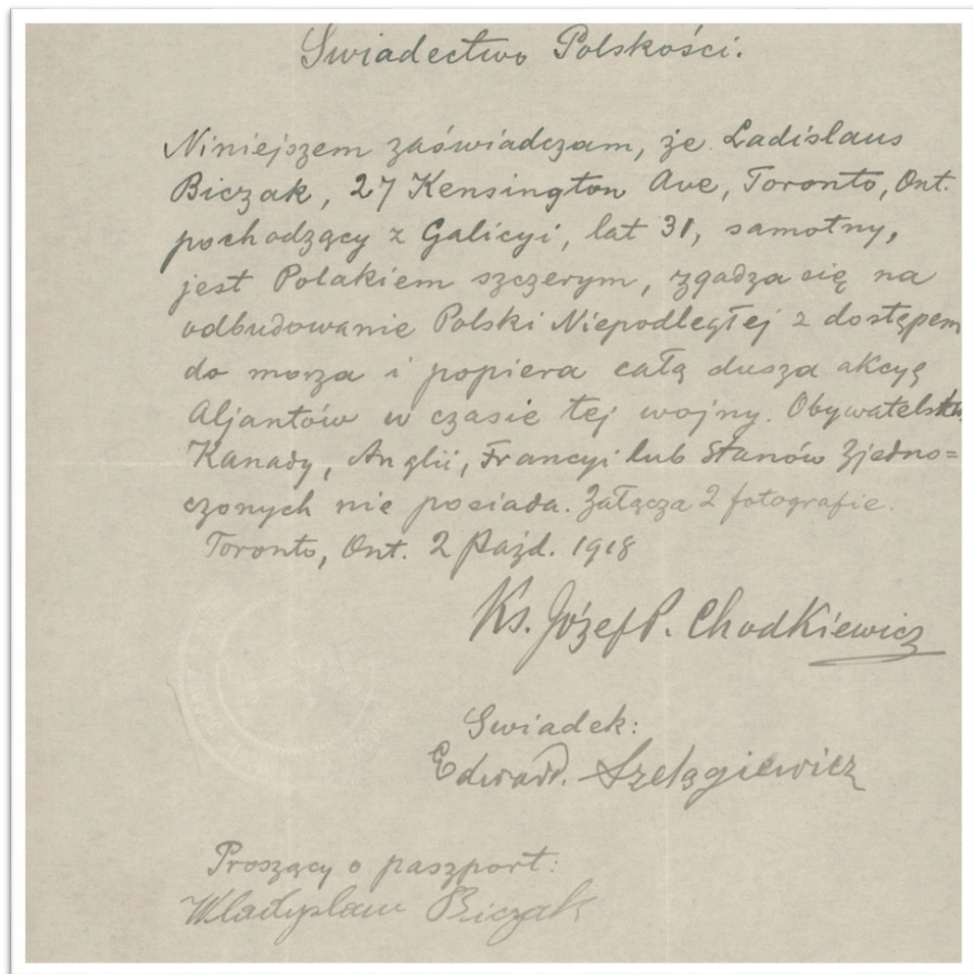 Swiadectwo Polskości.
Niniejszem zaświadczam, że Ladislaus
Biczak, 27 Kensington Ave, Toronto, Ont.
pochodzący z Galicyi, lat 31, samotny,
jest Polakiem szczerym, zgadza się na
odbudowanie Polski Niepodległej z dostępem
do morza i popiera całą dusza akcyę
Aljantów w czasie tej wojny. Obywatelstwa
Kanady, Anglii, Francyi lub Stanów Zjedno=
czonych nie posiada. Załącza 2 fotografie.
Toronto, Ont. 2 Paźd. 1918
Ks. Józef P. Chodkiewicz
Swiadek:
Edward. Szelągiewicz
Proszący o paszport:
Wladyslaw Biczak